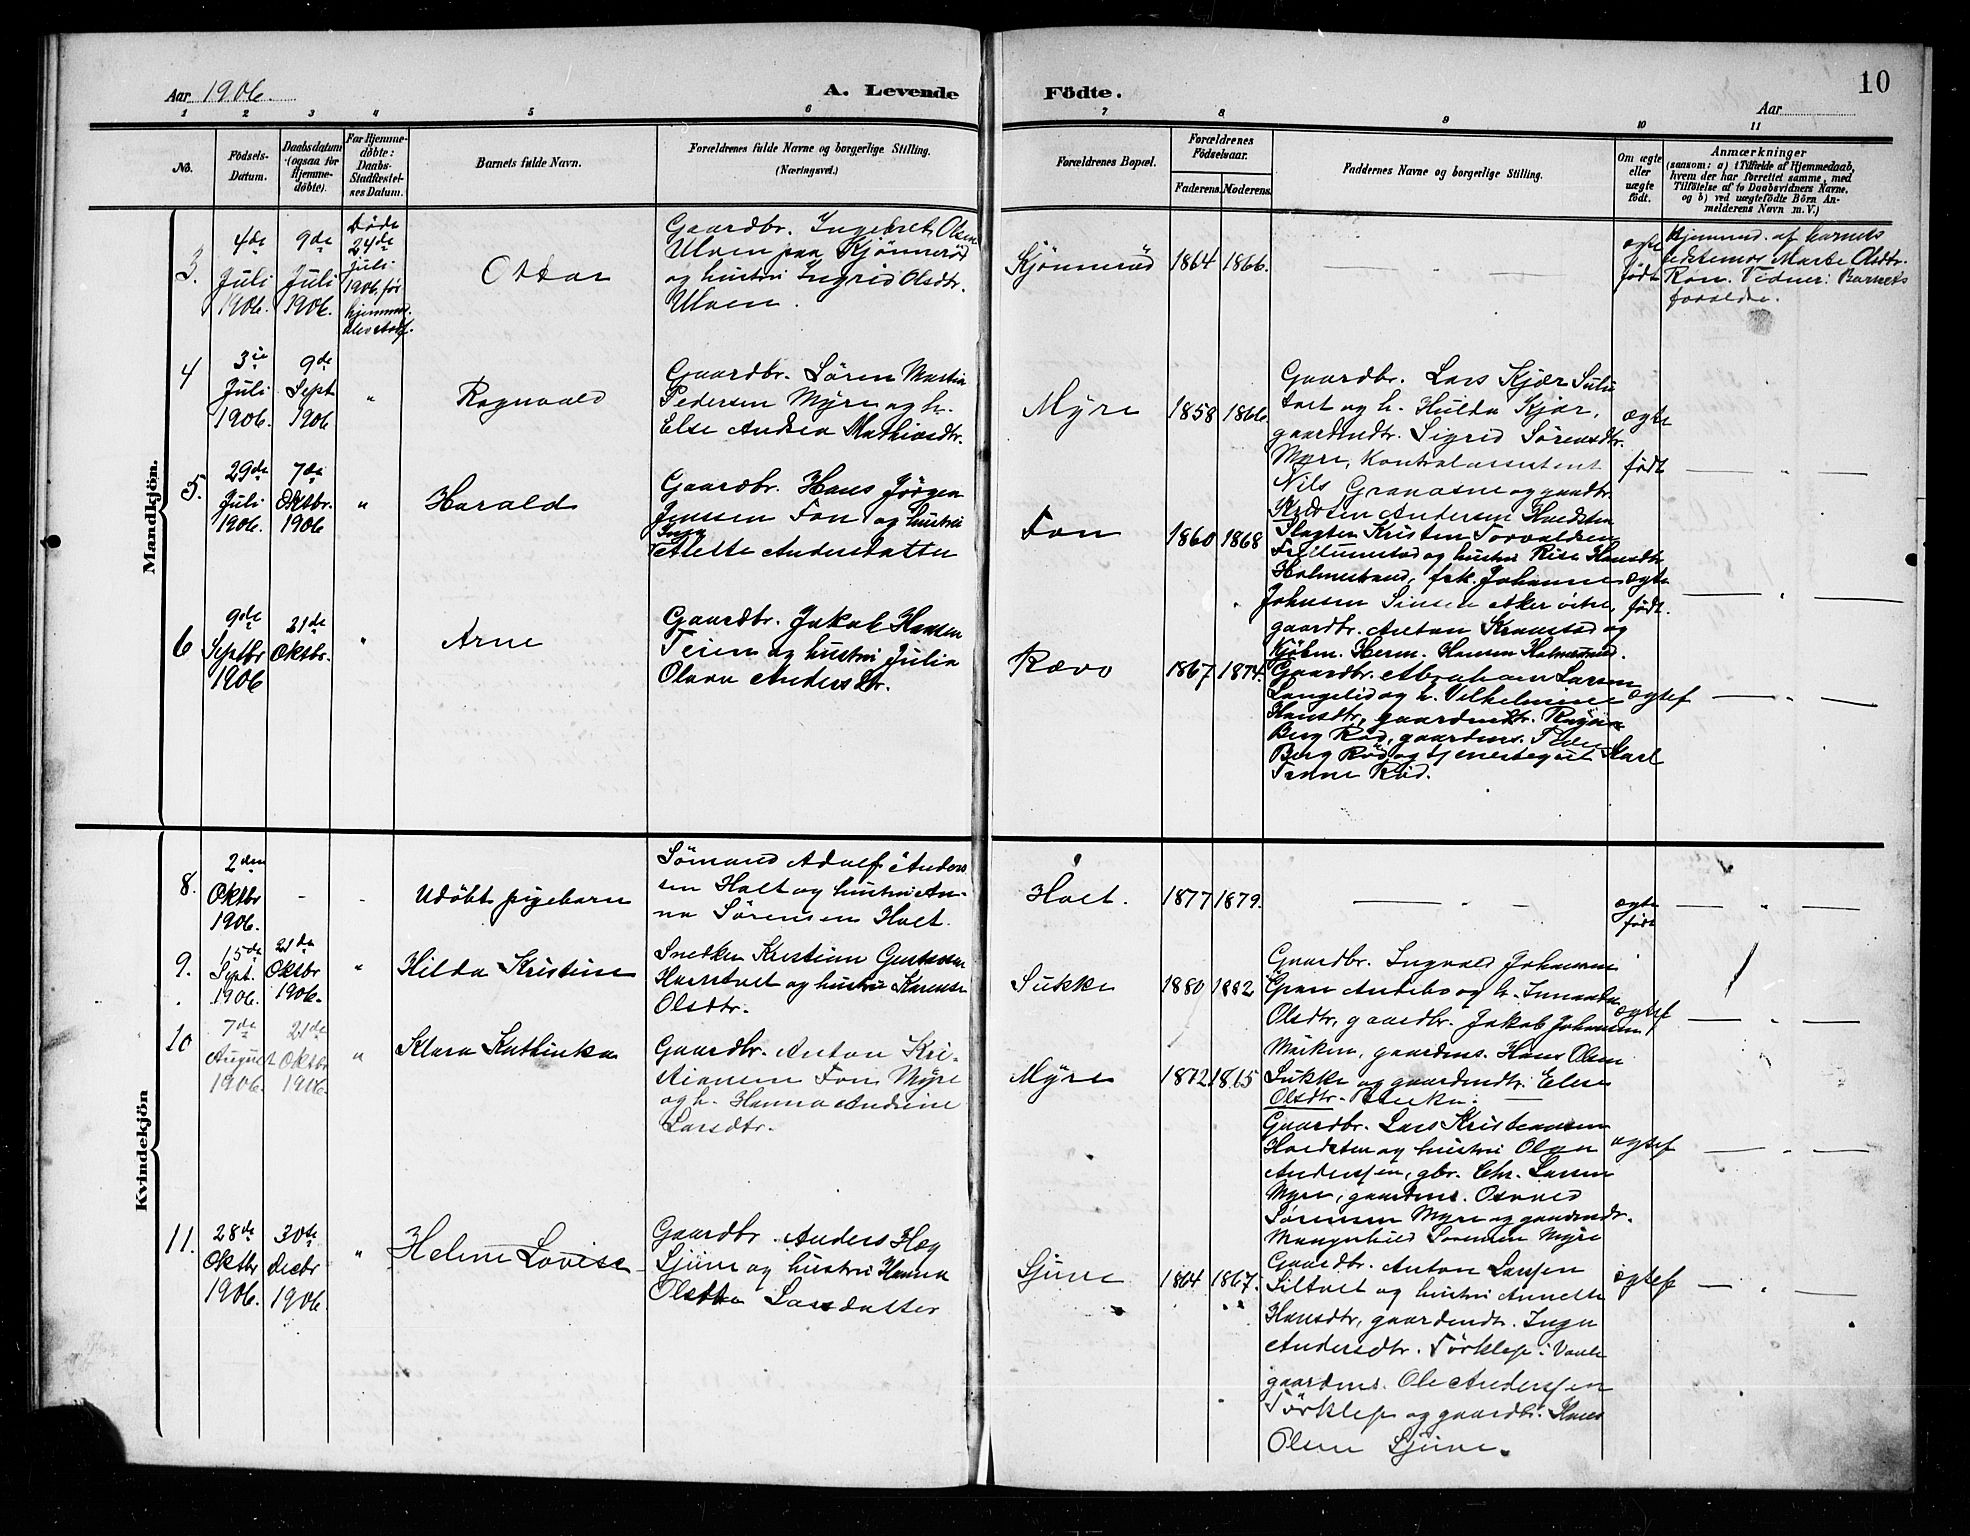 10
Aar 1906.
A. Levende Födte.
Aar
1 2 3 4 5 6 7 8 9 10 11
No.
Födsels-
Datum.
Daabsdatum
(ogsaa for
Hjemme-
döbte).
For Hjemme-
döbte:
Daabs-
Stadfæstel-
ses Datum.
Barnets fulde Navn.
Forældrenes fulde Navne og borgerlige Stilling.
(Næringsvei.)
Forældrenes Bopæl.
Forældrenes
Födselsaar.
Faderens. Moderens.
Faddernes Navne og borgerlige Stilling.
Om ægte
eller
uægte
födt.
Anmærkninger
(saasom: a) i Tilfælde af Hjemmedaab,
hvem der har forrettet samme, med
Tilföielse af to Daabsvidners Navne.
og b) ved uægtefödte Börn An-
melderens Navn m. V.)
Mandkjön.
3.
4de
Juli
1906.
9de
Juli
1906.
Døde
24de
Juli
1906 før
Ottar
Gaardbr. Ingebret Olsen
Ulven paa Kjønnerød
og hustru Ingrid Olsdtr.
Ulven.
Kjønnerød
1864 1866.
ægte
født
Hjemmed. af barnets
Marte Olsdtr.
Røn. Vidner: Barnets
forældre.
4
3die
Juli
1906.
9de
Sept
1906
"
Ragnvald
Gaardbr. Sören Martin
Pedersen Myre og h.
Else Andrea Mathiasdtr.
Myre
1858 1866.
Gaardbr. Lars Kjær Sul
tvet og h. Hulda Kjær,
gaardmdtr. Sigrid Sörensdtr.
Myre, Kontrolassistent
Nils og gaardbr.
Kristen Andersen Hvedsten
ægte
født
5.
29de
Juli
1906.
7de
Oktbr.
1906
"
Harald
Gaardbr. Hans Jörgen
Jenssen Fon og hustru
Inga
Alette Andersdatter
Fon
1860 1868
Slagter Kristen Torvaldsen
og hustru Hansdtr
Holmestrand, frk. Johanne
Johnsen Sinsen Aker
gaardbr. Anton Kraastad og
Kjøbm. Herm. Hansen Holmestrand.
ægte
født.
6
9de
Septbr
1906
21de
Oktbr.
"
Arne
Gaardbr. Jakob Hansen
Teien og hustru Julia
Olava Andersdtr.
Rævo
1867 1874.
Gaardbr. Abraham Larsen
Langelid og h. Vilhelmine
Hansdtr, gaardmdtr. Ragna
Berg Röd, gaardms. Peder
Berg Röd og tjenestegut Karl
Röd.
ægtef
Kvindekjön
8.
2den
Oktbr
1906.
Udöbt pigebarn
Sömand Adolf Anders
sen Holt og hustru An-
na Sörensen Holt.
Holt.
1877 1879.
ægte
født
9.
15de
Sept.
1906.
21de
Oktbr
1906.
"
Hilda Kristine
Snedker Kristian Gustavsen
og hustru Karense
Olsdtr.
Sukke
1880 1882
Gaardbr. Ingvald Johansen
Gran Andebo og h.
Olsdtr, gaardbr. Jakob Johansen
gaardms. Hans Olsen
Sukke og gaardmdtr. Elise
Olsdtr.
ægtef
10
7de
August
1906
21de
Oktbr
1906.
"
Klara Kathinka
Gaardbr. Anton Kri-
stiansen Fon Myre
og h. Hanna Andrine
Larsdtr.
Myre
1872 1865
Gaardbr. Lars Kristiansen
Hvedsten og hustru Olava
Anderssen, gbr. Chr. Larsen
Myre, gaardms. Osvald
Sörensen Myre og gaardmdtr.
Sörensen Myre
ægtef
11.
28de
Oktbr
1906.
30te
Decbr
1906.
"
Helene Lovise
Gaardbr. Anders Hæg
Sjue og hustru Hanna
Larsdatter
1864 1867.
Gaardbr. Anton Larssen
og hustru Annette
Hansdtr, gaardmdtr. Inga
Andersdtr. Tørklep i Vaale
gaardms. Ole Anderssen
Tørklep og gaardbr. Hans
Olsen
ægtef